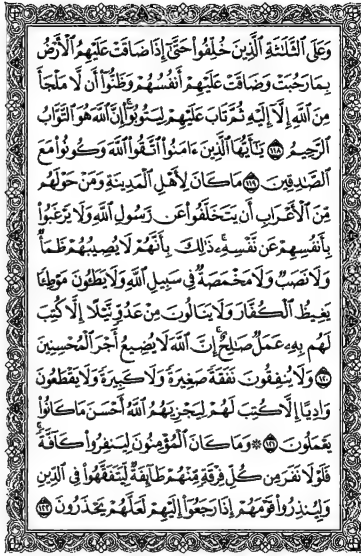 وَعَلَى ٱلثَّلَـٰثَةِ ٱلَّذِينَ خُلِّفُوا۟ حَتَّىٰٓ إِذَا ضَاقَتْ عَلَيْهِمُ ٱلْأَرْضُ
بِمَا رَحُبَتْ وَضَاقَتْ عَلَيْهِمْ أَنفُسُهُمْ وَظَنُّوٓا۟ أَن لَّا مَلْجَأَ
مِنَ ٱللَّهِ إِلَّآ إِلَيْهِ ثُمَّ تَابَ عَلَيْهِمْ لِيَتُوبُوٓا۟ۚ إِنَّ ٱللَّهَ هُوَ ٱلتَّوَّابُ
ٱلرَّحِيمُ ١١٨ يَـٰٓأَيُّهَا ٱلَّذِينَ ءَامَنُوا۟ ٱتَّقُوا۟ ٱللَّهَ وَكُونُوا۟ مَعَ
ٱلصَّـٰدِقِينَ ١١٩ مَا كَانَ لِأَهْلِ ٱلْمَدِينَةِ وَمَنْ حَوْلَهُم
مِّنَ ٱلْأَعْرَابِ أَن يَتَخَلَّفُوا۟ عَن رَّسُولِ ٱللَّهِ وَلَا يَرْغَبُوا۟
بِأَنفُسِهِمْ عَن نَّفْسِهِۦۚ ذَٰلِكَ بِأَنَّهُمْ لَا يُصِيبُهُمْ ظَمَأٌ
وَلَا نَصَبٌ وَلَا مَخْمَصَةٌ فِى سَبِيلِ ٱللَّهِ وَلَا يَطَـُٔونَ مَوْطِئًا
يَغِيظُ ٱلْكُفَّارَ وَلَا يَنَالُونَ مِنْ عَدُوٍّ نَّيْلًا إِلَّا كُتِبَ
لَهُم بِهِۦ عَمَلٌ صَـٰلِحٌۚ إِنَّ ٱللَّهَ لَا يُضِيعُ أَجْرَ ٱلْمُحْسِنِينَ
١٢٠ وَلَا يُنفِقُونَ نَفَقَةً صَغِيرَةً وَلَا كَبِيرَةً وَلَا يَقْطَعُونَ
وَادِيًا إِلَّا كُتِبَ لَهُمْ لِيَجْزِيَهُمُ ٱللَّهُ أَحْسَنَ مَا كَانُوا۟
يَعْمَلُونَ ١٢١ ۞ وَمَا كَانَ ٱلْمُؤْمِنُونَ لِيَنفِرُوا۟ كَآفَّةًۚ
فَلَوْلَا نَفَرَ مِن كُلِّ فِرْقَةٍ مِّنْهُمْ طَآئِفَةٌ لِّيَتَفَقَّهُوا۟ فِى ٱلدِّينِ
وَلِيُنذِرُوا۟ قَوْمَهُمْ إِذَا رَجَعُوٓا۟ إِلَيْهِمْ لَعَلَّهُمْ يَحْذَرُونَ ١٢٢